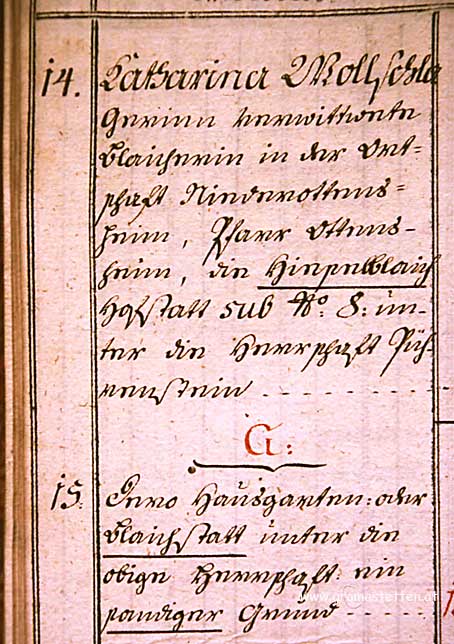 14. Catharina Wollschla
gerinn verwittwete
blaicherin in der Ort=
schaft Niederottens=
heim, Pfarr Ottens-
heim, die Hiesselblaich
Hofstatt sub No. 8: un-
ter die Herrschaft Püh-
renstein
G:
15. Dero Hausgarten: oder
blaichstatt unter die
obige Herrschaft: ein
sandiger Grund
www.gramastetten.at